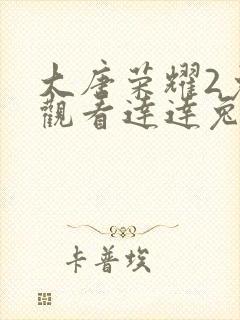 大唐荣耀2
觀看達達兔
卡普埃